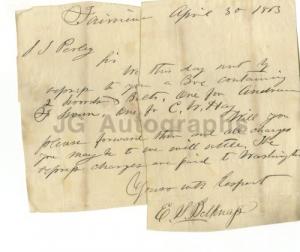 Fairview April 30 1863
J J Perley
Sir
We this day sent by
express to you a Box containing
2 bomb Belts, one for Andrew
J Swan one for C. W. Hay
Will you
please forward them and all charges
you may be to we will settle. The
express charges are paid to Washington
Yours with Respect
E. S. Belknap
JG Autographs